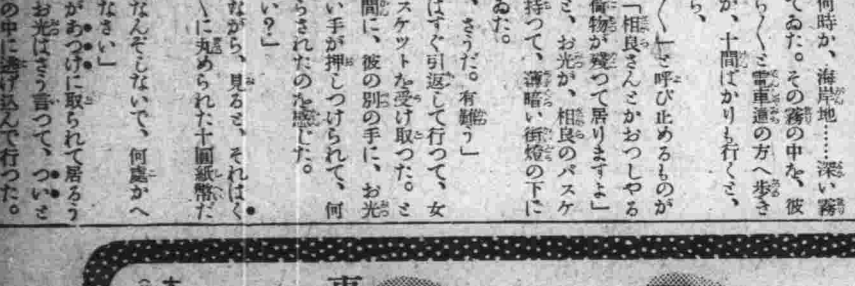 何時か、海岸地……深い霧
てゐた。その霧の中を、彼
ら〳〵と電車道の方へ歩き
が、十間ばかりも行くと、
ら、
く」と呼び止めるものが
「相良さんとかおつしやる
荷物が残つて居りますよ」
と、お光が、相良のバスケ
持つて、薄暗い街燈の下に
ゐた。
、さうだ。有難う」
はすぐ引返して行つて、女
スケツトを受け取つた。と
間に、彼の別の手に、お光
い手が押しつけられて、何
らされたのを感じた。
い？」
ながら、見ると、それはく
〳〵に丸められた十圓紙幣だ
なんぞしないで、何處かへ
なさい」
があつけに取られて居るう
お光はさう言つて、ついと
の中に逃げ込んで行つた。